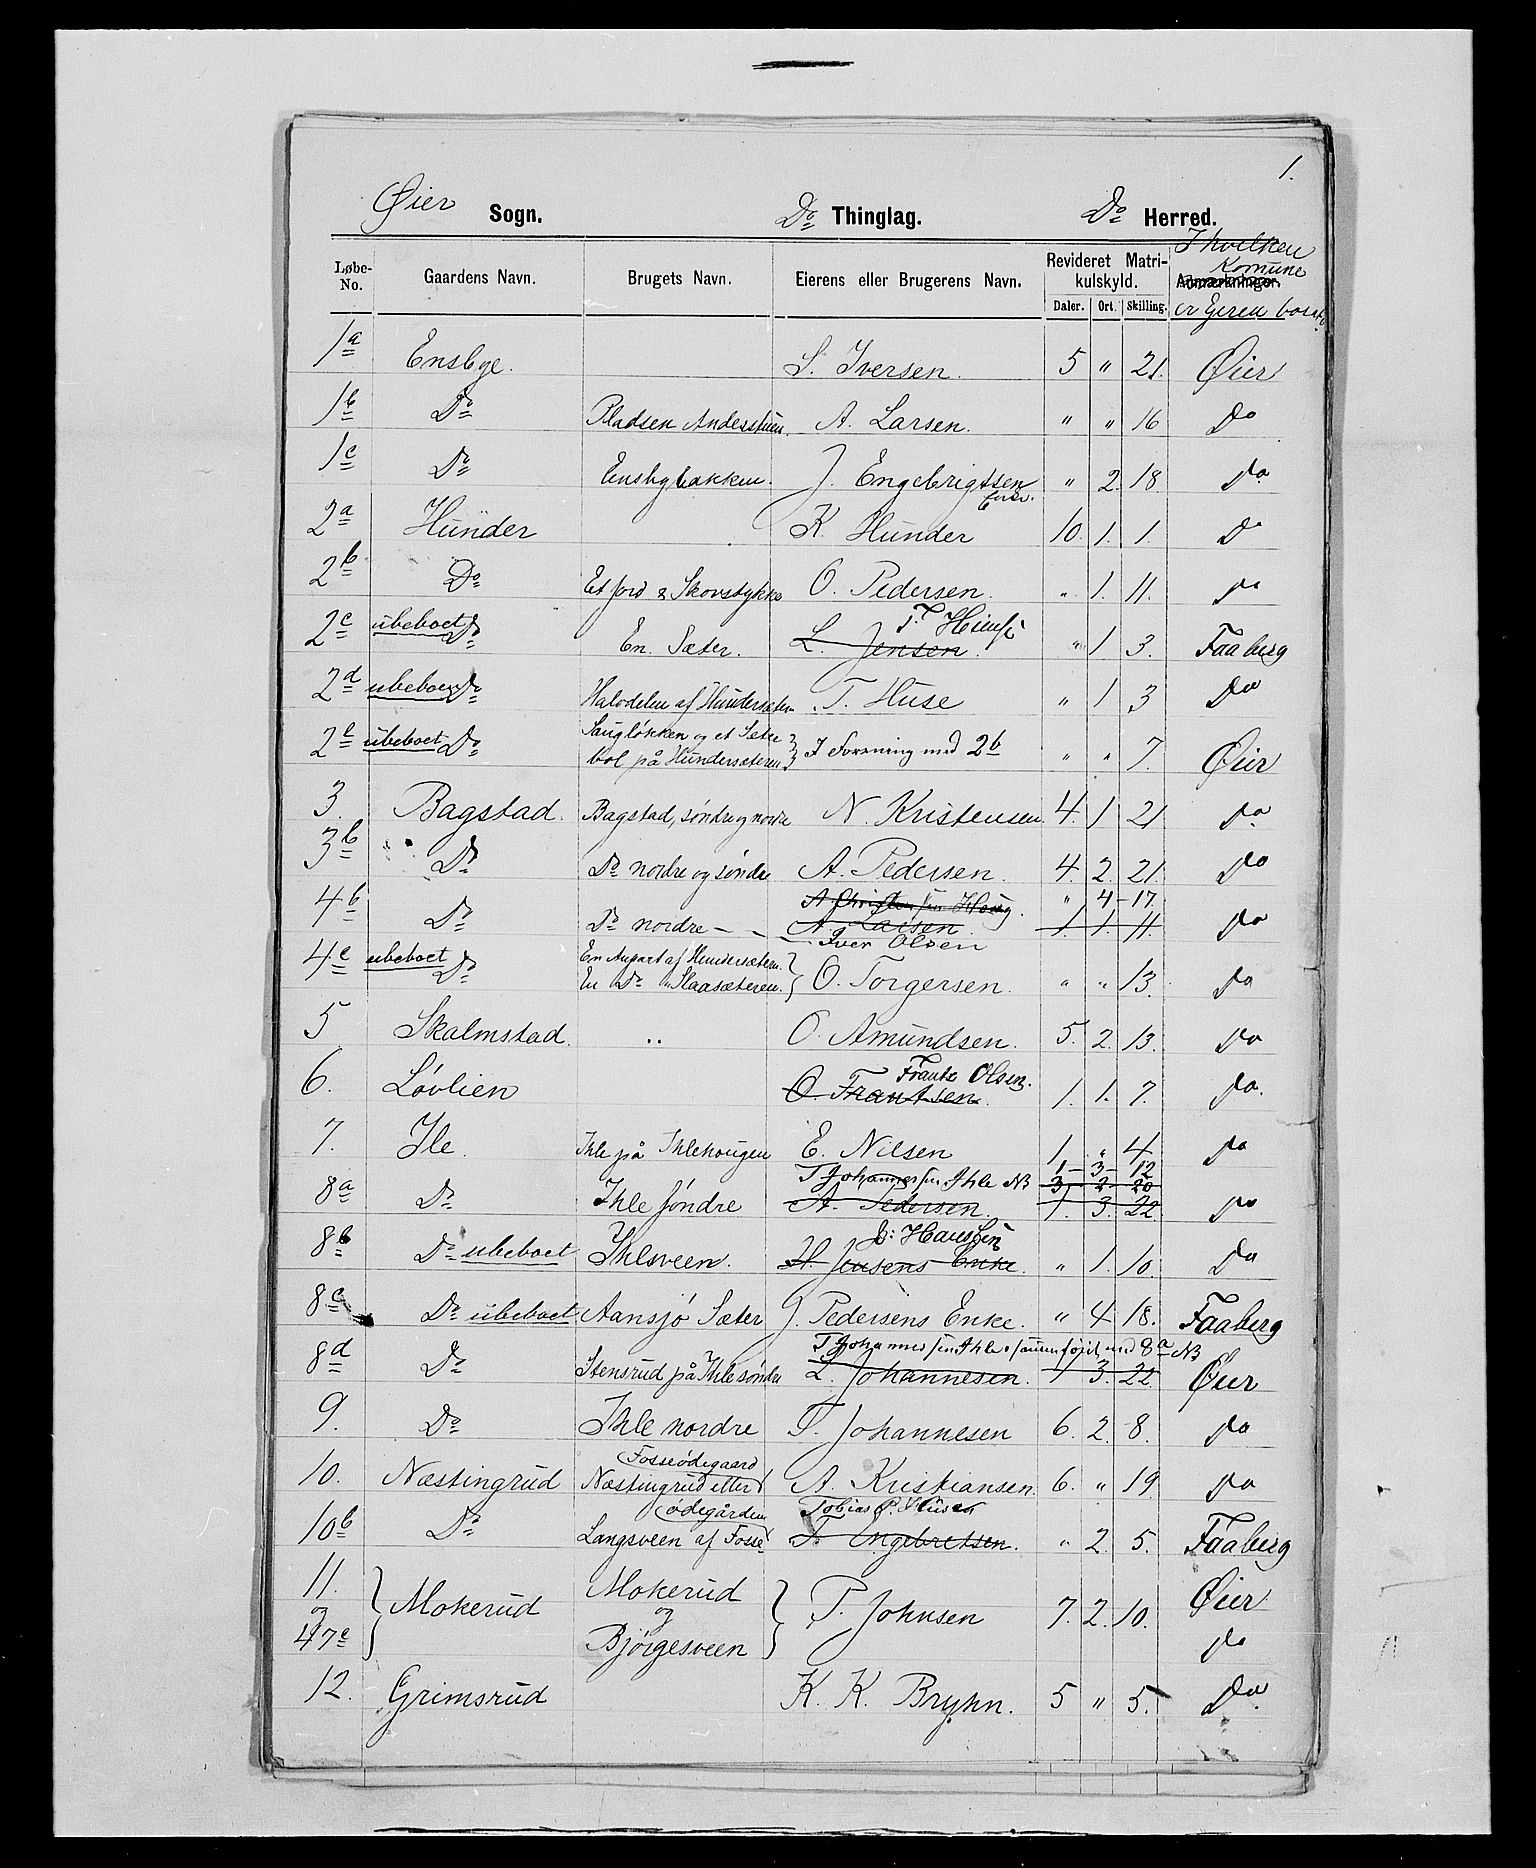 1.
Øier Sogn. Do Thinglag. Do Herred.
Løbe-No. Gaardens Navn. Brugets Navn. Eierens eller Brugerens Navn. Revideret Matrikulskyld. Daler. Ort. Skilling. I hvilken Komune Anmærkninger. er Eieren bosat
1a Ensbye. S. Iversen. 5 " 21. Øier
1b Do Pladsen Andersstuen. A. Larsen. " " 16 Do
1c Do Ensbybakken. J. Engebrigtsen Enke. " 2. 18 Do
2a Hunder K. Hunder 10. 1. 1. Do
2b Do Et Jord & Skovstykke O. Pedersen. " 1. 11. Do
2c ubeboet Do En Sæter. L. Jensen. T. " 1 3. Faaberg
2d ubeboet Do Halvdelen af Hundersæteren T. Huse " 1 3 Do
2e ubeboet Do Saugløkken og et Sæterbol på Hundersæteren } I Forening med 2b " " 7. Øier
3. Bagstad. Bagstad, søndre og nordre N. Kristensen. 4. 1 21 Do
3b Do Do nordre og søndre A. Pedersen. 4. 2. 21 Do
A Christensen Houg. " 4-17.
4b Do Do nordre - - - A. Larsen. 1. 1. 11. Do
Iver Olsen
4c ubeboet Do En Anpart af Hundersæteren. En Do " Slaasæteren. } O. Torgersen. " " 13. Do
5 Skalmstad. " O. Amundsen. 5. 2. 13. Do
Frants Olsen.
6. Løvlien O. Frantsen. 1. 1. 7. Do.
7. Ile. Ihle på Ihlehougen E. Nilsen 1 " 4 Do
T Johannessen Ihle NB 1-3-12
3-2-20
8a Do Ihle søndre A. Pedersen. 1. 3. 22. Do
Hanssen
8b Do ubeboet Ihlsveen. H. Jensens Enke. " 1. 10. Do
8c Do ubeboet Aansjø Sæter J. Pedersens Enke. " 4 18. Faaberg
T Johannessen Ihle, sammenføiet med 8a NB
8d Do Stensrud på Ihle søndre L. Johannesen. 1 3. 22. Øier
9. Do Ihle nordre T. Johannesen 6. 2. 8. Do
Fosseødegaard
10. Næstingrud Næstingrud eller A. Kristiansen. 6. " 19. Do
ødegården Tobias P. Huse
10b Do Langsveen af Fosse- T. Engebretsen. " 2. 5. Faaberg
11. og 47c } Mokerud Mokerud og Bjørgesveen } P. Johnsen 7. 2. 10. Øier Do
12. Grimsrud K. K. Bryhn. 5 " 5. Do